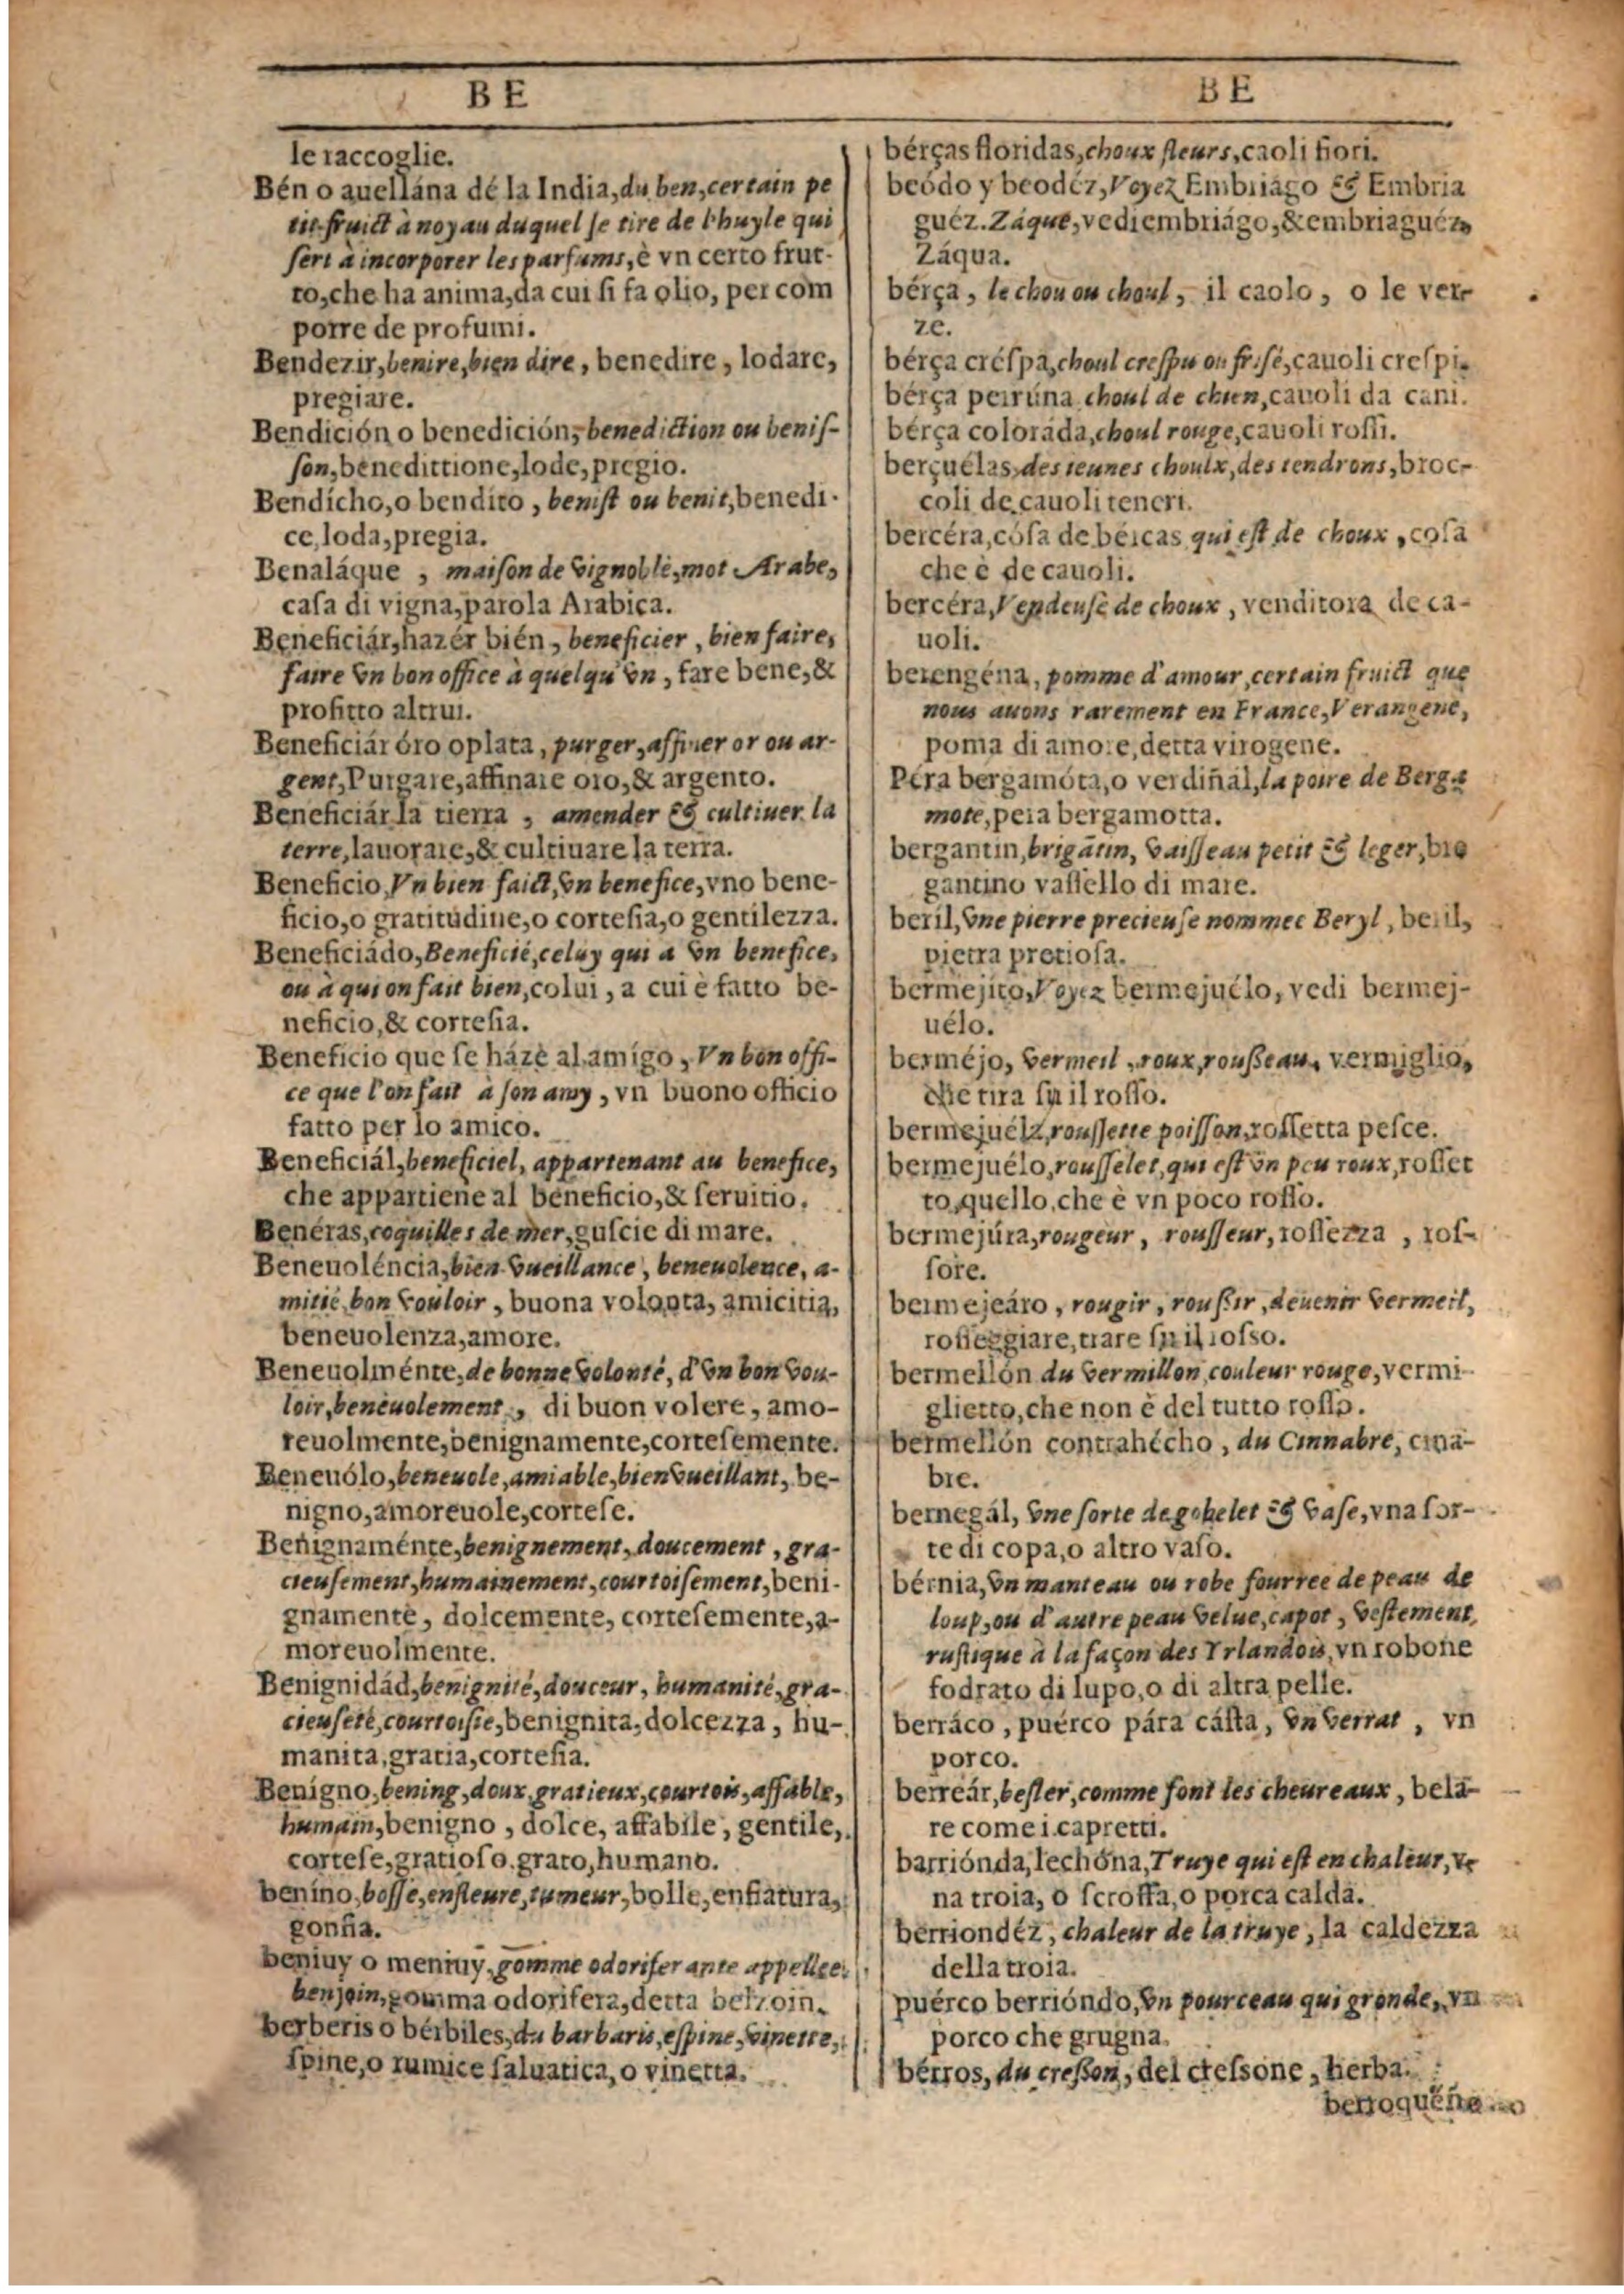 BE
le raccoglie.
Bén o auellána dé la India, du ben, certain pe
tit fruict à noyau duquel se tire de l'huyle qui
sert à incorporer les parfums, è vn certo frut-
to, che ha anima, da cui si fa olio, per com
porre de profumi.
Bendezir, benire, bien dire, benedire, lodare,
pregiare.
Bendición o benedición, benediction ou benis-
son, benedittione, lode, pregio.
Bendícho, o bendito, benist ou benit, benedi-
ce, loda, pregia.
Benaláque, maison de vignoble, mot Arabe,
casa di vigna, parola Arabica.
Beneficiár, hazér bién, beneficier, bien faire,
faire vn bon office à quelqu'vn, fare bene, &
profitto altrui.
Beneficiár óro o plata, purger, affiner or ou ar-
gent, Purgare, affinare oro, & argento.
Beneficiár la tierra, amender & cultiuer la
terre, lauorare, & cultiuare la terra.
Beneficio, Vn bien faict, vn benefice, vno bene-
ficio, o gratitudine, o cortesia, o gentilezza.
Beneficiádo, Beneficié, celuy qui a vn benefice,
ou à qui on fait bien, colui, a cui è fatto be-
neficio, & cortesia.
Beneficio que se házè al amígo, Vn bon offi-
ce que l'on fait à son amy, vn buono officio
fatto per lo amico.
Beneficiál, beneficiel, appartenant au benefice,
che appartiene al beneficio, & seruitio.
Benéras, coquilles de mer, guscie di mare.
Beneuoléncia, bien-vueillance, beneuolence, a-
mitié, bon vouloir, buona volonta, amicitia,
beneuolenza, amore.
Beneuolménte, de bonne volonté, d'vn bon vou-
loir, beneuolement, di buon volere, amo-
reuolmente, benignamente, cortesemente.
Beneuólo, beneuole, amiable, bienvueillant, be-
nigno, amoreuole, cortese.
Benignaménte, benignement, doucement, gra-
cieusement, humainement, courtoisement, beni-
gnamente, dolcemente, cortesemente, a-
moreuolmente.
Benignidád, benignité, douceur, humanité, gra-
cieuseté, courtoisie, benignita, dolcezza, hu-
manita, gratia, cortesia.
Benígno, bening, doux, gratieux, courtois, affable,
humain, benigno, dolce, affabile, gentile,
cortese, gratioso, grato, humano.
beníno, bosse, enfleure, tumeur, bolle, enfiatura,
gonfia.
beniuy o meniuy, gomme odoriferante appellee
benjoin, gomma odorifera, detta belzoin.
berberis o bérbiles, du barbaris, espine, vinette,
spine, o rumice saluatica, o vinetta.
BE
bérças floridas, choux fleurs, caoli fiori.
beódo y beodéz, Voyez Embriágo & Embria
guéz. Záque, vedi embriágo, & embriaguéz,
Záqua.
bérça, le chou ou choul, il caolo, o le ver-
ze.
bérça créspa, choul crespu ou frisé, cauoli crespi.
bérça perrúna choul de chien, cauoli da cani.
bérça coloráda, choul rouge, cauoli rossi.
berçuélas, des ieunes choulx, des tendrons, broc-
coli de cauoli teneri.
bercéra, cósa de bércas qui est de choux, cosa
che è de cauoli.
bercéra, Vendeuse de choux, venditora de ca-
uoli.
berengéna, pomme d'amour, certain fruict que
nous auons rarement en France, Verangene,
poma di amore, detta virogene.
Péra bergamóta, o verdiñál, la poire de Berga
mote, pera bergamotta.
bergantin, brigãtin, vaisseau petit & leger, brɩ
gantino vassello di mare.
beril, vne pierre precieuse nommee Beryl, beril,
pietra pretiosa.
bermejíto, Voyez bermejuélo, vedi bermej-
uélo.
berméjo, vermeil, roux, rousseau, vermiglio,
che tira su il rosso.
bermejuéla, roussette poisson, rossetta pesce.
bermejuélo, rousselet, qui est vn peu roux, rosset
to, quello, che è vn poco rosso.
bermejúra, rougeur, rousseur, rossezza, ros-
sore.
bermejeáro, rougir, roussir, deuenir vermeil,
rosseggiare, trare su il rosso.
bermellón du vermillon, couleur rouge, vermi-
glietto, che non è del tutto rosso.
bermellón contrahécho, du Cinnabre, cina-
bre.
bernegál, vne sorte de gobelet & vase, vna sor-
te di copa, o altro vaso.
bérnia, vn manteau ou robe fourree de peau de
loup, ou d'autre peau velue, capot, vestement
rustique à la façon des Yrlandois, vn robone
fodrato di lupo, o di altra pelle.
berráco, puérco pára cásta, vn verrat, vn
porco.
berreár, besler, comme font les cheureaux, bela-
re come i capretti.
barriónda, lechóna, Truye qui est en chaleur, v-
na troia, o scroffa, o porca calda.
berriondéz, chaleur de la truye, la caldezza
della troia.
puérco berrióndo, vn pourceau qui gronde, vn
porco che grugna.
bérros, du cresson, del cressone, herba.
berroquéña